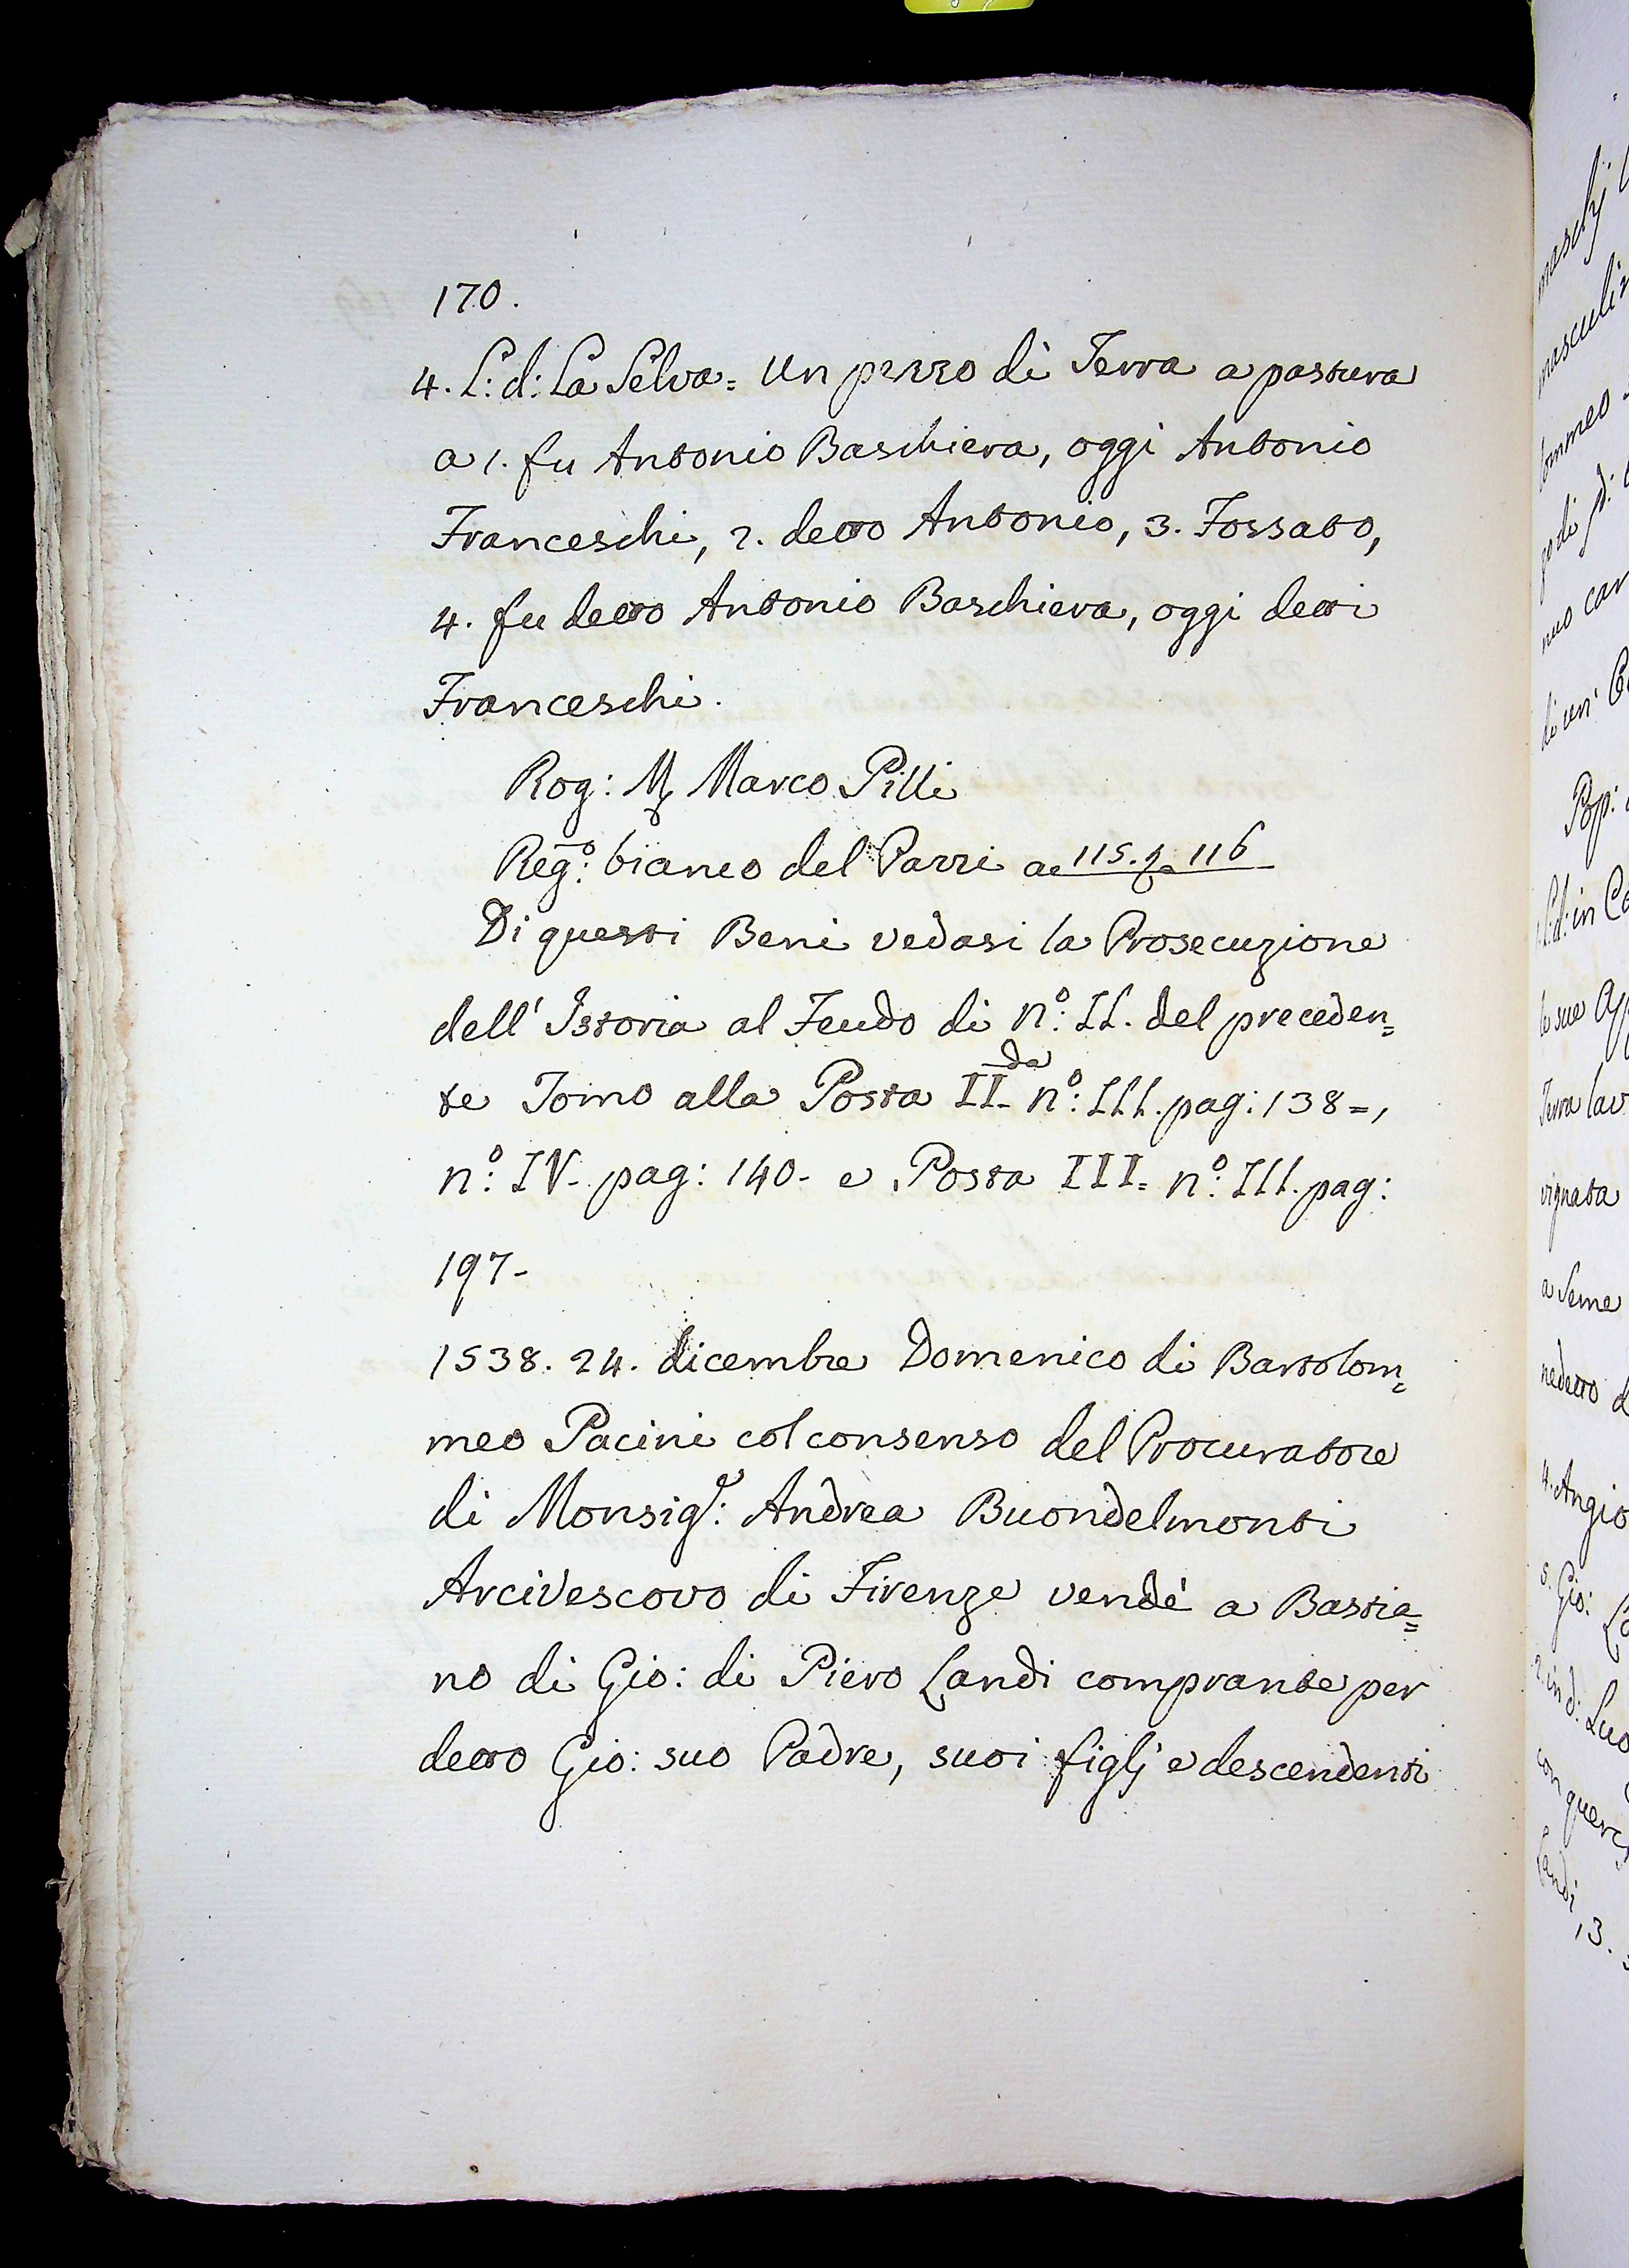 170.
4. L: d: La Selva = Un pezzo di Terra a pastura
a 1. fu Antonio Baschiera, oggi Antonio
Franceschi, 2. detto Antonio, 3. Fossato,
4. fu detto Antonio Baschiera, oggi detti
Franceschi.
Rog: Marco Pilli
Reg:º bianco del Pazzi a 115. 116
Di questi Beni vedasi la Prosecuzione
dell' Istoria al Feudo di nº: II. del preceden=
te Tomo alla Posta II.da nº: III. pag: 138=,
nº: IV- pag: 140- e Posta III= nº: III. pag:
197-
1538. 24. dicembre Domenico di Bartolom=
meo Pacini col consenso del Procuratore
di Monsig:e Andrea Buondelmonti
Arcivescovo di Firenze vendè a Bastia=
no di Gio: di Piero Landi comprante per
detto Gio: suo Padre, suoi figlj e descendenti
maschj
masculin
tommeo
di un
Pop:
L:d: in Ca
le sue
Terra lav
vignata
a Seme
nedetto d
4. Angio
5. Gio:
2. in d: Luo
con querc
Landi
13.